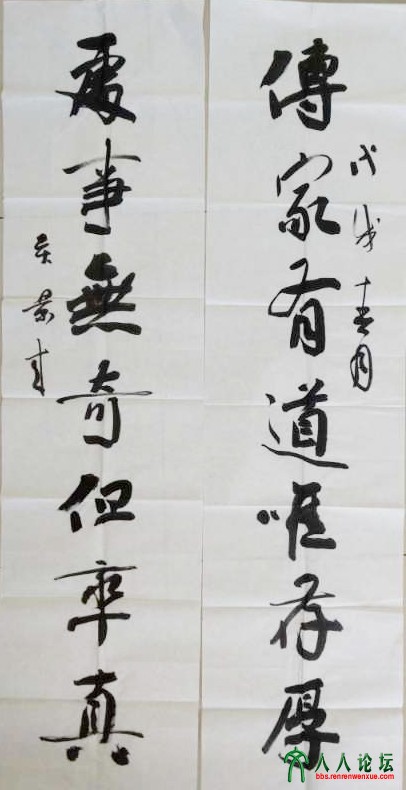 傳家有道唯存厚
戊戌七月
處事無奇但率真
人人论坛
bbs.renrenwenxue.com